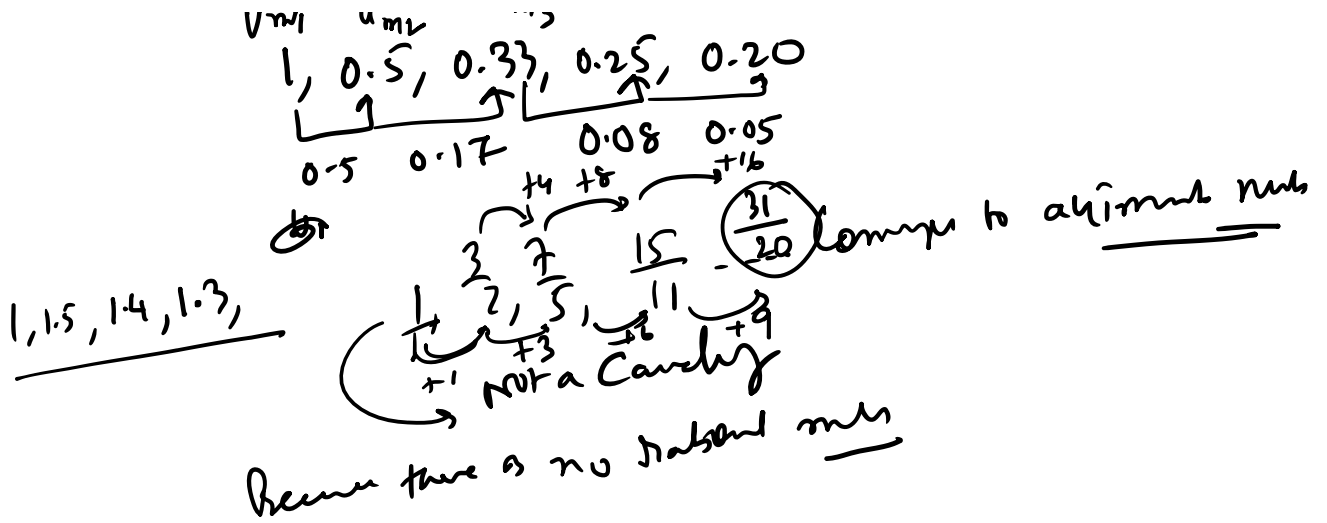 1, 0.5, 0.33, 0.25, 0.20
0.5 0.17 0.08 0.05
+4 +8 +16
1/1, 3/2, 7/5, 15/11 - - 31/20 Converges to
+1 +3 +6 +9
1, 1.5, 1.4, 1.3,
Not a Cauchy
Because there is no rational